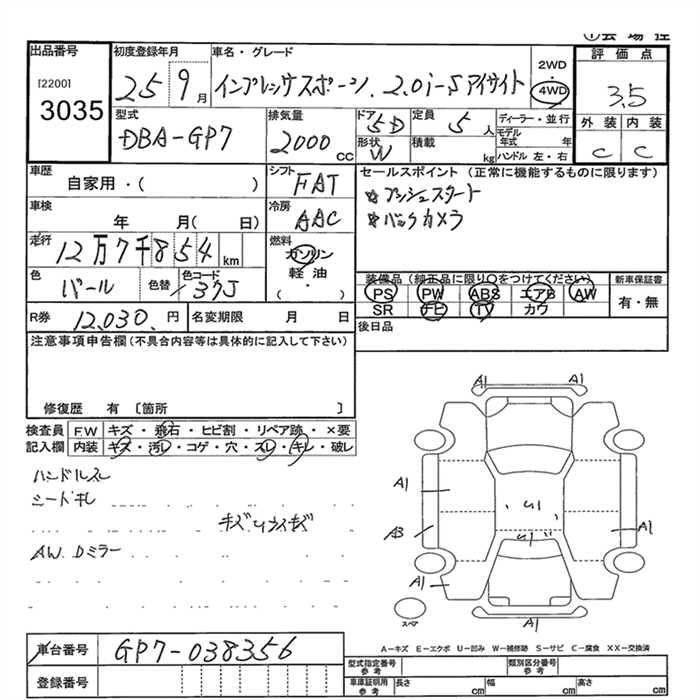 出品番号
[2200]
3035
初度登録年月
25 9月
車名・グレード
インプレッサスポーツ. 2.0i-Sアイサイト
2WD
・
4WD
評価点
3.5
外装 内装
C C
型式
DBA-GP7
排気量
2000cc
ドア
5D
形状
W
定員
5人
積載
kg
ディーラー・並行
モデル年式 年
ハンドル 左・右
車歴
自家用・( )
シフト
FAT
セールスポイント (正常に機能するものに限ります)
☆プッシュスタート
☆バックカメラ
車検
年 月( 日)
冷房
AAC
走行
12万7千854km
燃料
ガソリン
軽油・
( )
色
パール
色替
色コード
37J
装備品 (純正品に限り○をつけてください)
PS PW ABS エアB AW
SR TV カワ
新車保証書
有・無
後日品
R券
12,030.円
名変期限 月 日
注意事項申告欄(不具合内容等は具体的に記入して下さい)
修復歴 有 〔箇所 〕
検査員記入欄
F.W キズ・飛石・ヒビ割・リペア跡・×要
内装 キズ・汚レ・コゲ・穴・スレ・キレ・破レ
ハンドルスレ
シートキレ
AW. Dミラー
A1 A1
A1
U1
A3
U1
A1
A1
A1
スペア
A―キズ E―エクボ U―凹み W―補修跡 S―サビ C―腐食 XX―交換済
車台番号
GP7-038356
登録番号
型式指定番号
参考
類別区分番号
参考
車庫証明用
参考
長さ cm 幅 cm 高さ cm